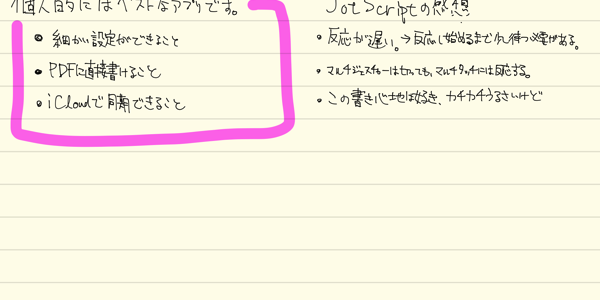 個人的にはベストなアプリです。
• 細かい設定ができること
• PDFに直接書けること
• iCloudで同期できること
Jot Scriptの感想
• 反応が遅い。→反応し始めるまで少し待つ必要がある。
• マルチジェスチャーは切っても、マルチタッチには反応する。
• この書き心地は好き、カチカチうるさいけど